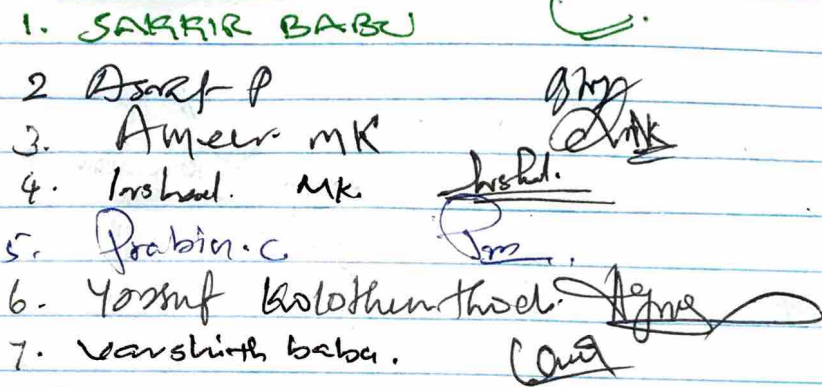 1. SAKKIR BABU
2 Asraf P
3. Ameer MK
4. Irshad. MK. Irshad.
5. Prabin.C
6. Yossuf Kolothumthodi.
7. Varshith baba.